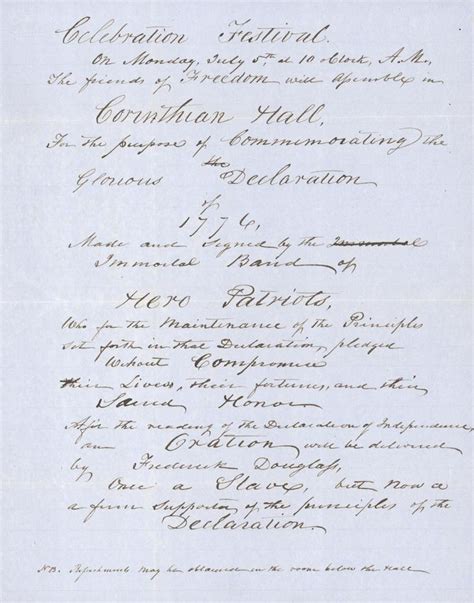 Celebration Festival.
On Monday, July 5th at 10 oClock, A.M.,
The friends of Freedom will assemble in
Corinthian Hall,
For the purpose of Commemorating the
the
Glorious Declaration
of
1776,
Made and Signed by the Immortal
Immortal Band of
Hero Patriots,
Who for the Maintenance of the Principles
set forth in that Declaration, pledged
Without Compromise
their Lives, their fortunes, and their
Sacred Honor
After the reading of the Declaration of Independence
an Oration will be delivered
by Frederick Douglass,
Once a Slave, but now a
a firm supporter of the principles of the
Declaration.
N.B. Refreshments may be obtained in the room below the Hall